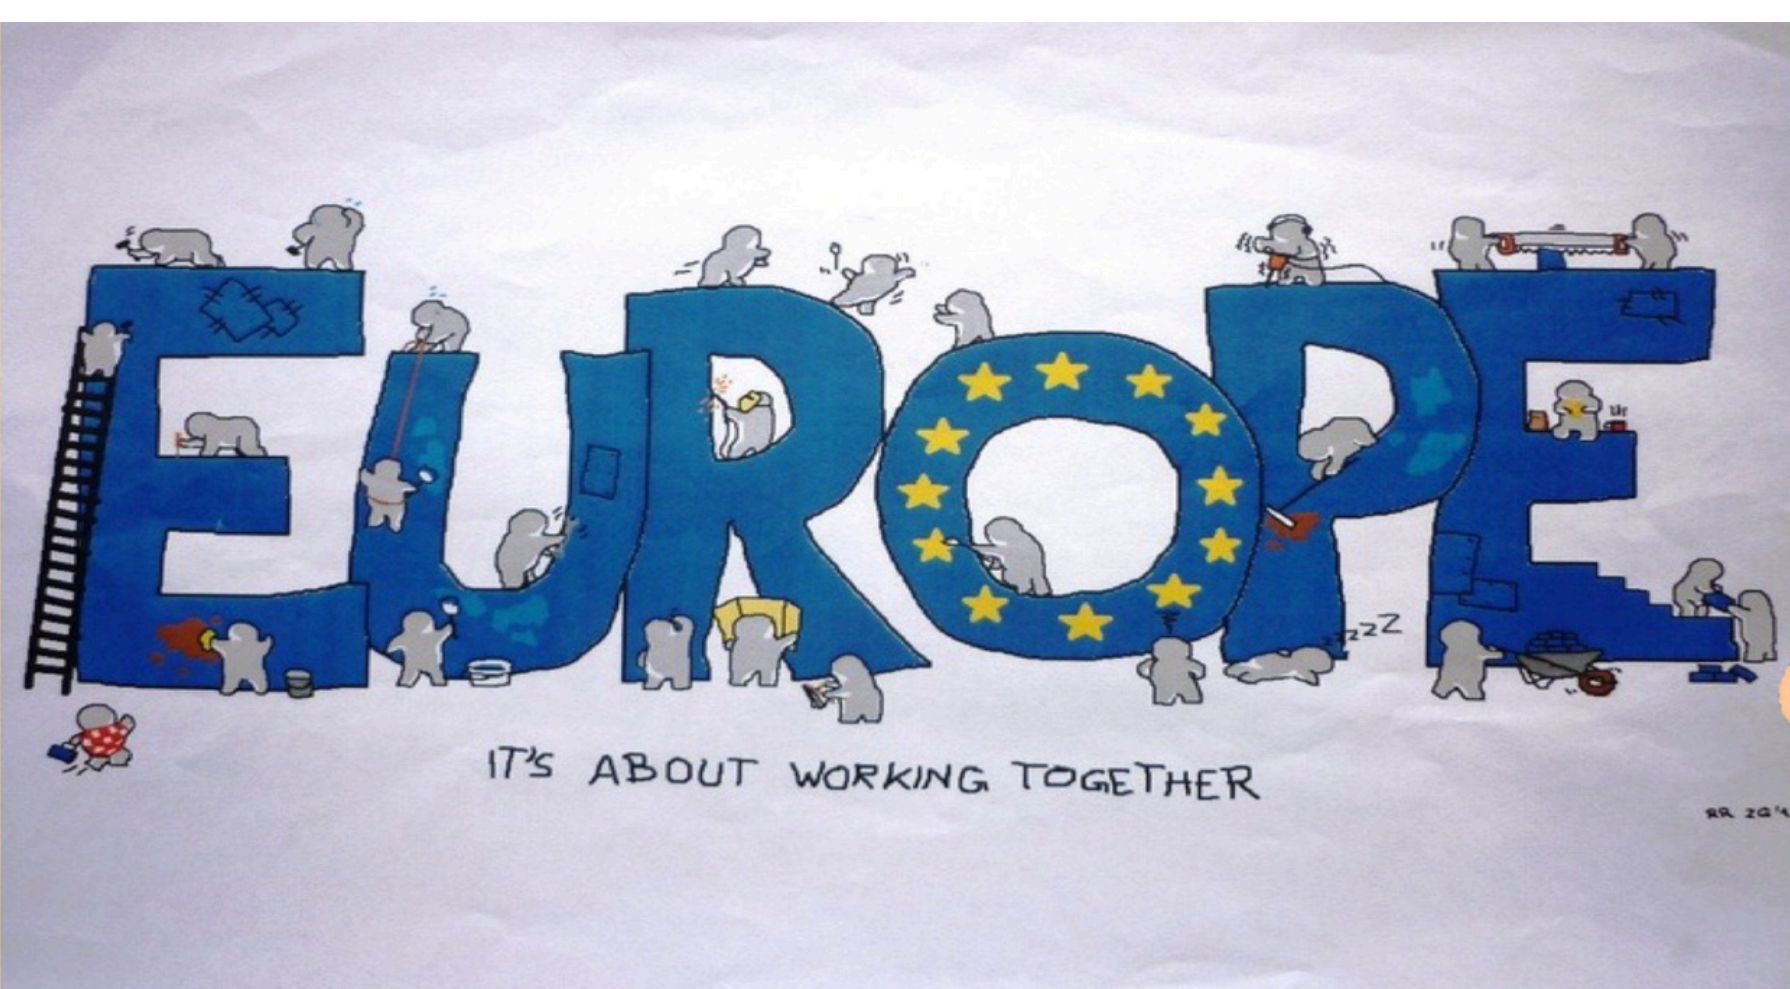 EUROPE
zzzzZ
IT'S ABOUT WORKING TOGETHER
RR